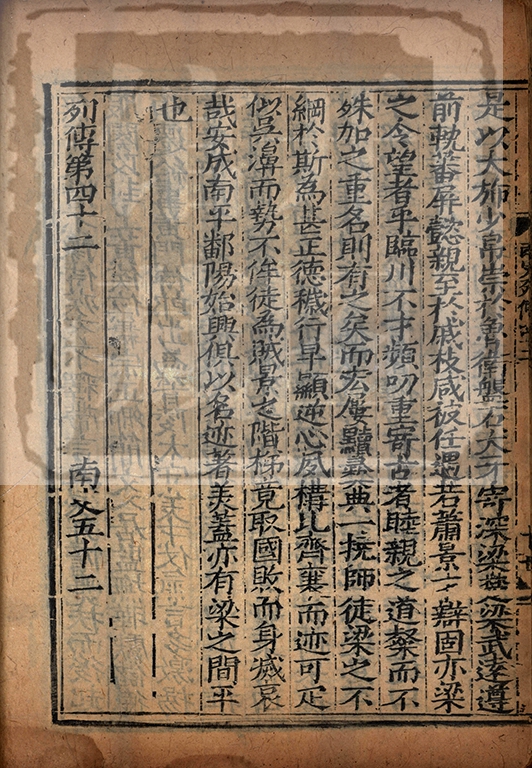 是以大斾少帛崇於魯衛盤石犬牙寄深梁楚梁武遠遵
前軌蕃屏懿親至於戚枝咸被任遇若蕭景才辯固亦梁
之令望者乎臨川不才頻叨重寄古者睦親之道粲而不
殊加之重名則有之矣而宏屢黷彝典一撓師徒梁之不
綱於斯為甚正德穢行早顯逆心夙構比齊襄而迹可匹
似吳濞而勢不侔徒為賊景之階梯竟取國敗而身滅哀
哉安成南平鄱陽始興俱以名迹著美蓋亦有梁之間平
也
列傳第四十二 南史五十二